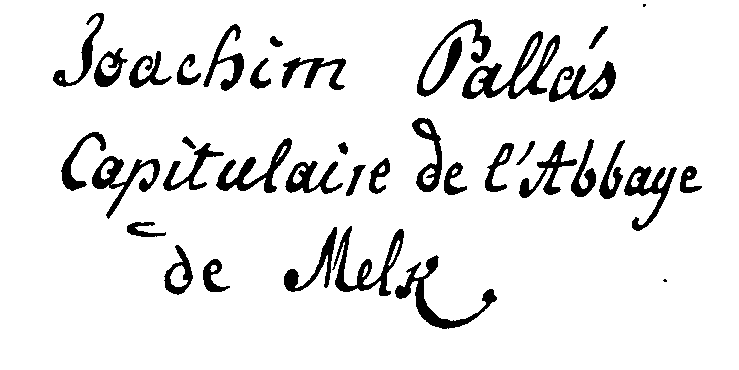 Joachim Pallás
Capitulaire de l'Abbaye
de Melk